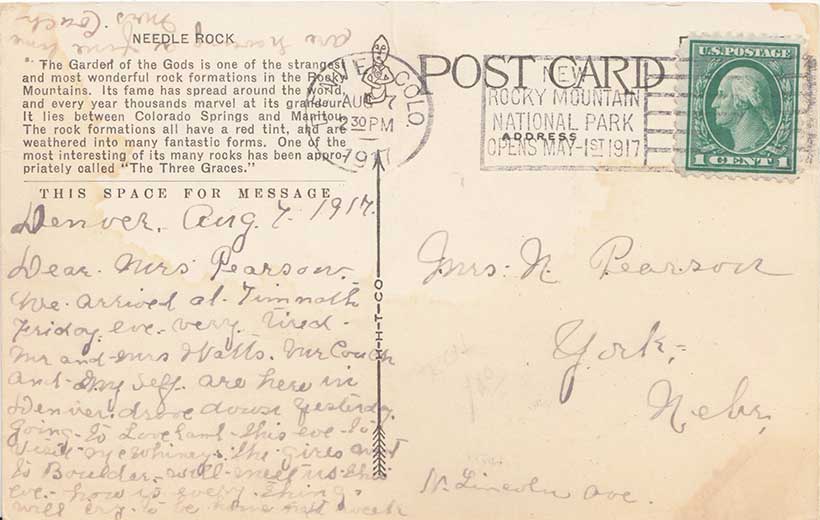 NEEDLE ROCK
The Garden of the Gods is one of the strangest
and most wonderful rock formations in the Rocky
Mountains. Its fame has spread around the world,
and every year thousands marvel at its grandeur.
It lies between Colorado Springs and Manitou.
The rock formations all have a red tint, and are
weathered into many fantastic forms. One of the
most interesting of its many rocks has been appro-
priately called "The Three Graces."
THIS SPACE FOR MESSAGE
Denver, Aug. 7. 1917.
Dear Mrs Pearson.
We arrived at Timnath
Friday eve. very tired.
Mr and Mrs Watts. Mr Couch
and My self are here in
Denver. drove down yesterday.
Going to Loveland this eve to
visit the girls went
to Boulder. will meet us this
eve. how is every thing.
will try to be home next week
are having a fine time
Mrs Couch
H-H-T-CO
POST CARD
ADDRESS
COLO.
AUG 7
2 30 PM
1917
NEW
ROCKY MOUNTAIN
NATIONAL PARK
OPENS MAY-1ST 1917
U.S. POSTAGE
1 CENT 1
Mrs. N. Pearson
York,
Nebr,
N. Lincoln Ave.